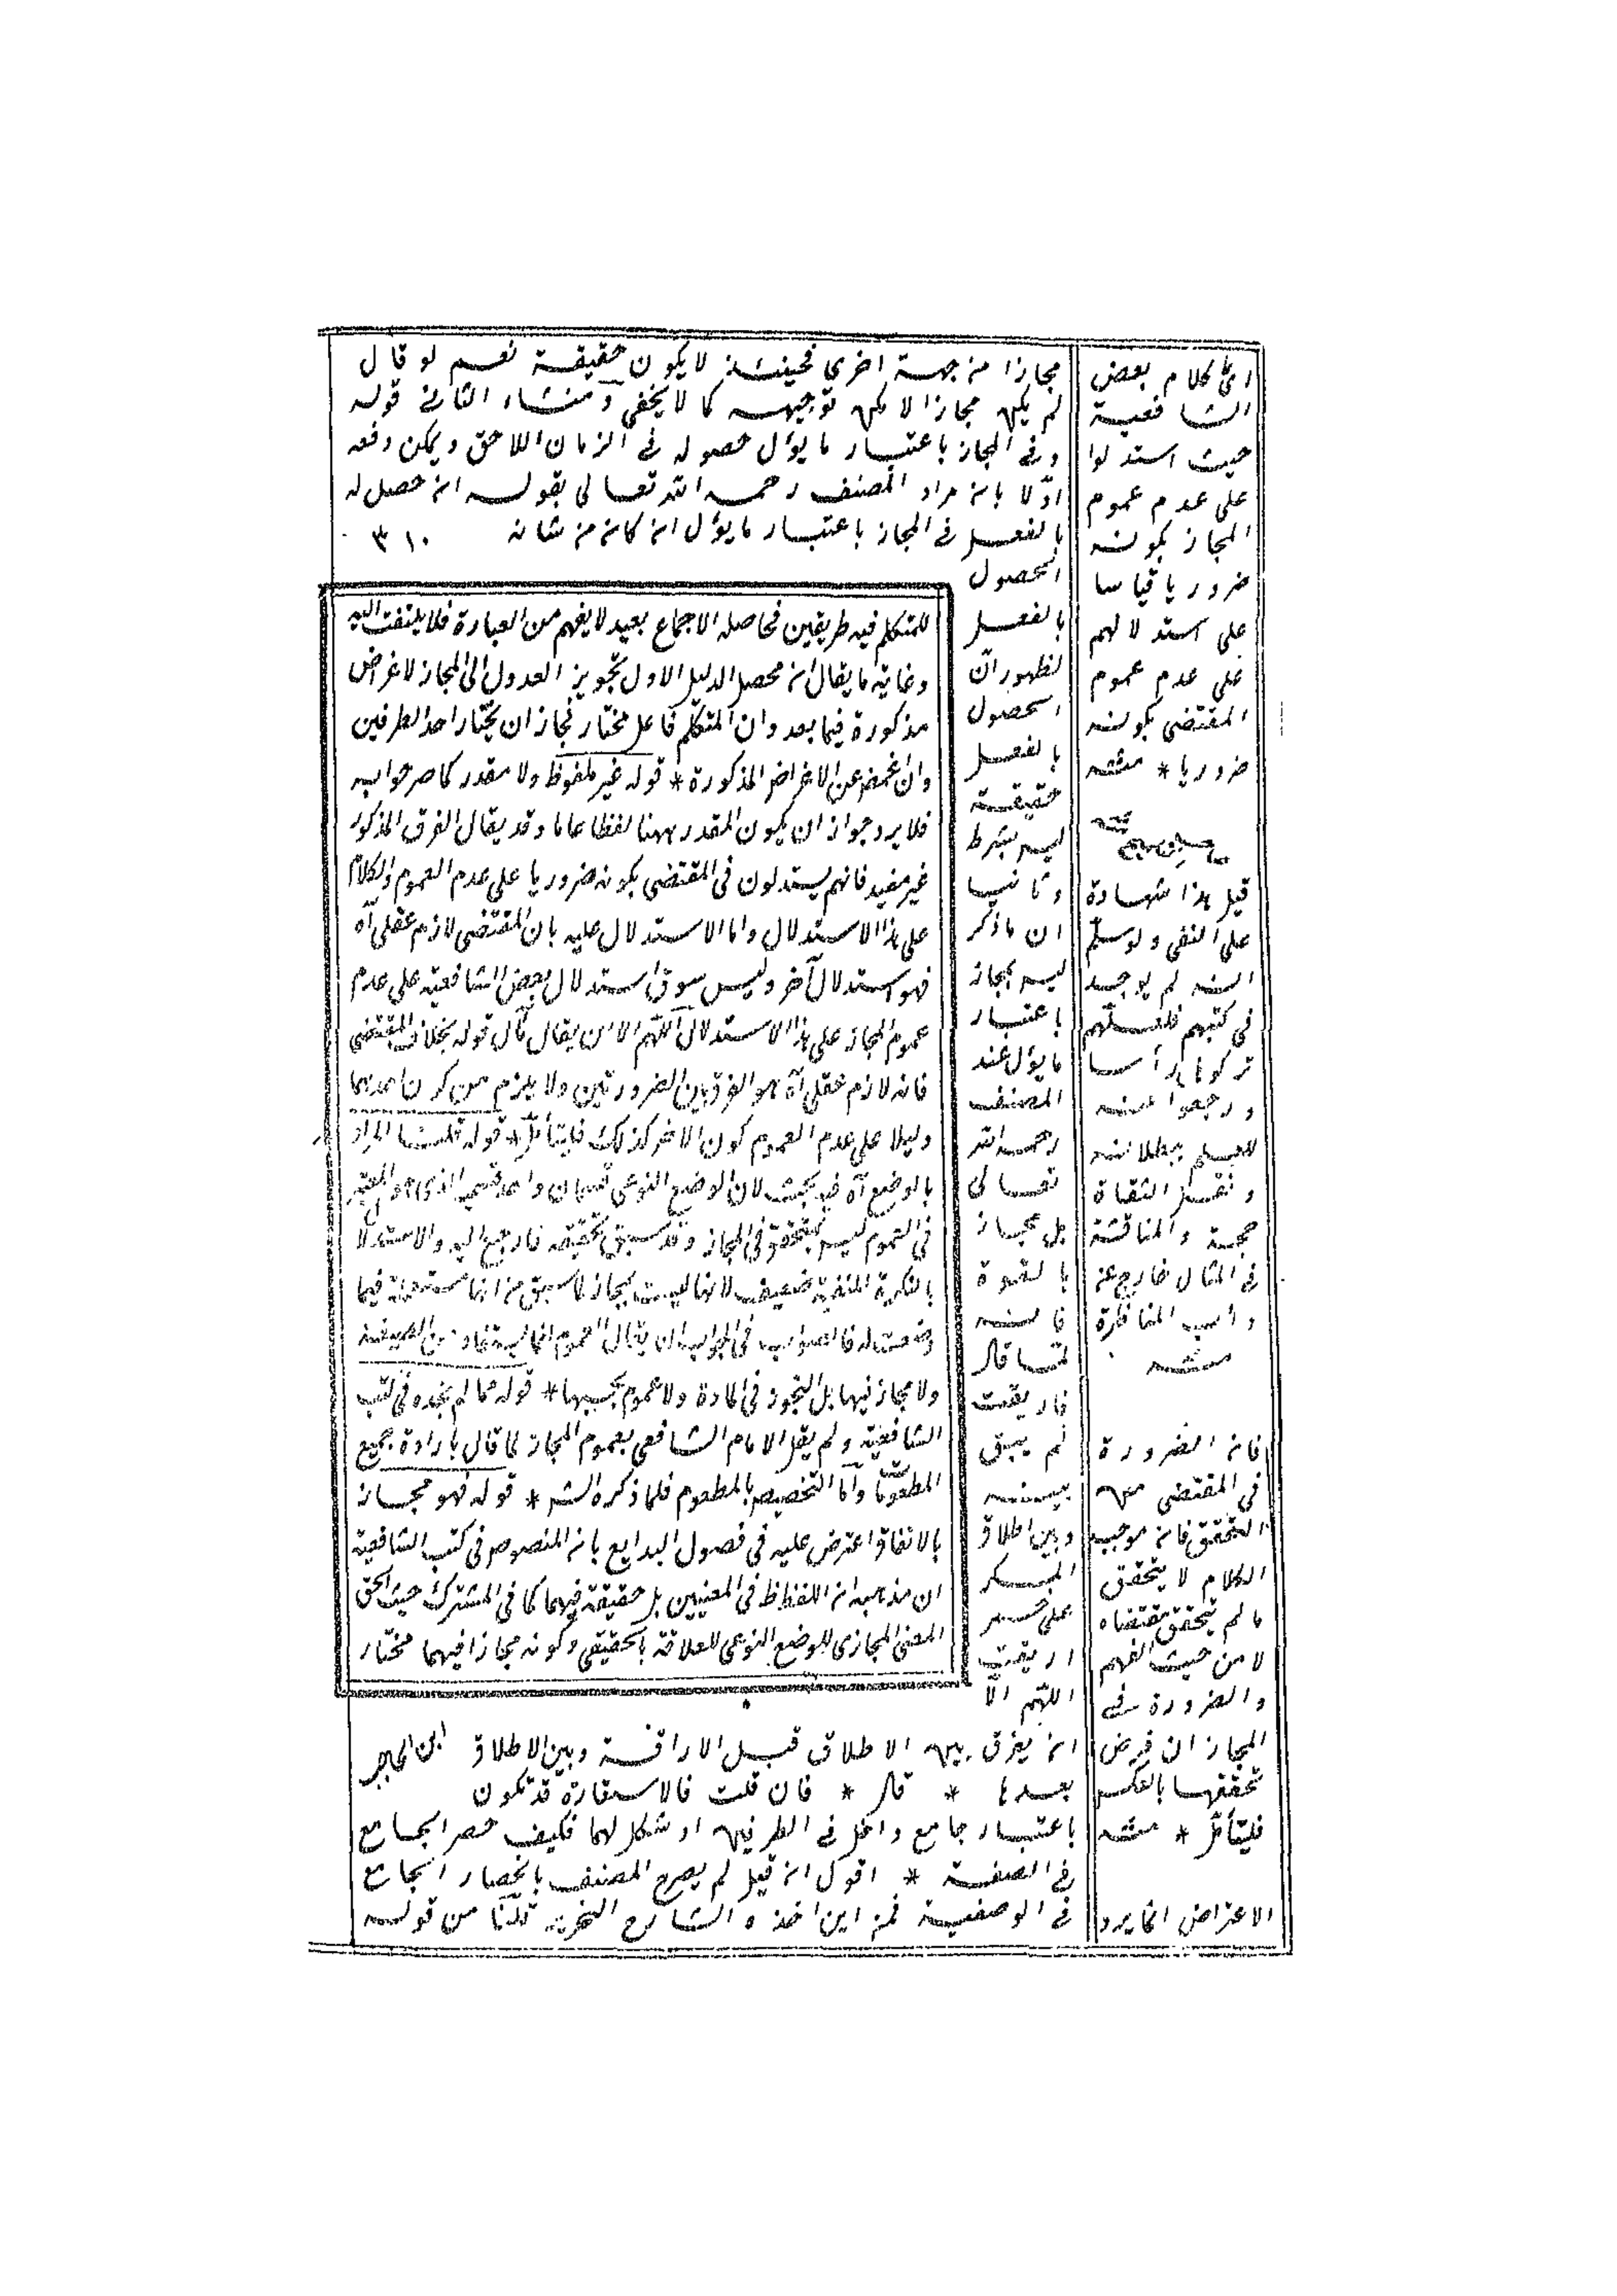 مجازا من جهة اخرى فحينئذ لا يكون حقيقة نعم لو قال
لم يكن مجازا لا مكن توجيهه كما لا يخفى ومنشاء الثانى قوله
وفى المجاز باعتبار ما يؤل حصوله فى الزمان اللاحق ويمكن دفعه
اوّلا بان مراد المصنف رحمه الله تعالى بقوله ان حصل له
بالفعل فى المجاز باعتبار ما يؤل ان كان من شانه
الحصول
بالفعل
لظهور انّ
الحصول
بالفعل
حقيقة
ليس بشرط
وثانيا
ان ما ذكر
ليس بمجاز
باعتبار
ما يؤل عند
المصنف
رحمه الله
تعالى
بل مجاز
بالقوة
فانه
لمّا قال
اريقت
لم يبق
بينه
وبين اطلاق
المسكر
على خمر
اريقت
اللهم الّا
ان يفرق بين الاطلاق قبل الاراقة وبين الاطلاق
بعدها * قال * فان قلت فالاستعارة قد تكون
باعتبار جامع داخل فى الطرفين او شكل لهما فكيف حصر الجامع
فى الصفة * اقول ان قيل لم يصرح المصنف بانحصار الجامع
فى الوصفية فمن اين اخذه الشارح النحرير قلنا من قوله
للمتكلم فيه طريقين فحاصله الاجماع بعيد لا يفهم من العبارة فلا يلتفت اليه
وغاية ما يقال ان محصل الدليل الاول تجويز العدول الى المجاز لاغراض
مذكورة فيما بعد وان المتكلم فاعل مختار فجاز ان يختار احد الطرفين
وان غمض عن الاغراض المذكورة * قوله غير ملفوظ ولا مقدر كما صر جوابه
فلا يرد جواز ان يكون المقدر ههنا لفظا عاما وقد يقال الفرق المذكور
غير مفيد فانهم يستدلون فى المقتضى بكونه ضروريا على عدم العموم والكلام
على هذا الاستدلال واما الاستدلال عليه بان المقتضى لازم عقلى آه
فهو استدلال آخر وليس سوق استدلال بعض الشافعية على عدم
عموم المجاز على هذا الاستدلال اللهم الا ان يقال مآل قوله بخلاف المقتضى
فانه لازم عقلى آه هو الفرق بين الضرورتين ولا يلزم من كون احدهما
دليلا على عدم العموم كون الاخر كذلك فليتأمل * قوله قلت المراد
بالوضع آه فيه بحث لان الوضع النوعى قسمان واحد قسميه الذى هو المعتبر
فى العموم ليس بمتحقق فى المجاز وقد سبق تحقيقه فارجع اليه والاستدلال
بالنكرة المنفية ضعيف لانها ليست بمجاز لما سبق من انها مستعملة فيما
وضعت له فالصواب فى الجواب ان يقال العموم انما يستفاد من الصيغة
ولا مجاز فيها بل التجوز فى المادة ولا عموم بحسبها * قوله مما لم نجده فى كتب
الشافعية ولم يقل الامام الشافعى بعموم المجاز لما قال بارادة جميع
المطعومات وامّا التخصيص بالمطعوم فلما ذكره الشر * قوله فهو مجاز
بالاتفاق اعترض عليه فى فصول البدايع بان المنصوص فى كتب الشافعية
ان مذهبه ان اللفظ فى المعنيين بل حقيقة فيهما كما فى المشترك حيث الحق
المعنى المجازى للوضع النوعى للعلاقة بالحقيقى وكونه مجازا فيهما مختار
ابن الحاجب
اى كلام بعض
الشافعية
حيث استدلوا
على عدم عموم
المجاز بكونه
ضروريا قياسا
على استدلالهم
على عدم عموم
المقتضى بكونه
ضروريا * منه
قيل هذا شهادة
على النفى ولو سلم
انه لم يوجد
فى كتبهم فلعلهم
تركوها رأسا
ورجعوا عنه
للعلم ببطلانه
ونقل الثقاة
حجة والمناقشة
فى المثال خارج عن
داب المناظرة
منه
فان الضرورة
فى المقتضى من
التحقق فانه موجب
الكلام لا يتحقق
ما لم يتحقق مقتضاه
لا من حيث الفهم
والضرورة فى
المجاز ان فرض
تحققها بالعكس
فليتأمل * منه
الاعتراض انما يرد